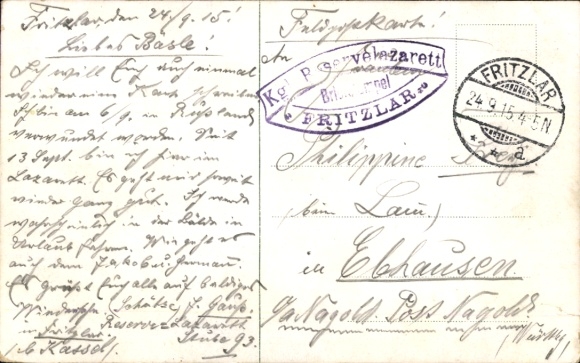 Fritzlar, den 24/9. 15!
Liebes Basle!
Ich will Euch auch einmal
wieder eine Kart schreiben
Ich bin am 6/9. in Rußland
verwundet worden. Seit
13 Sept. bin ich hier im
Lazarett. Es geht mir soweit
wieder ganz gut. Ich werde
wahrscheinlich in der Bälde in
Urlaub fahren. Wie geht es
auch dem Jakob u. Herman.
Es grüßt Euch alle auf baldiges
Wiedersehn Schütze J. Gauß.
Reserve-Lazarett
in Fritzlar Stube 93.
b. Kassel.
Feldpostkarte!
An
Fräulein
Kgl. Pr. Reservelazarett
FRITZLAR
FRITZLAR
24.9.15.4-5N
a
Philippine
beim Lam
in Ebhausen
Nagold Post Nagold
(Württbg)